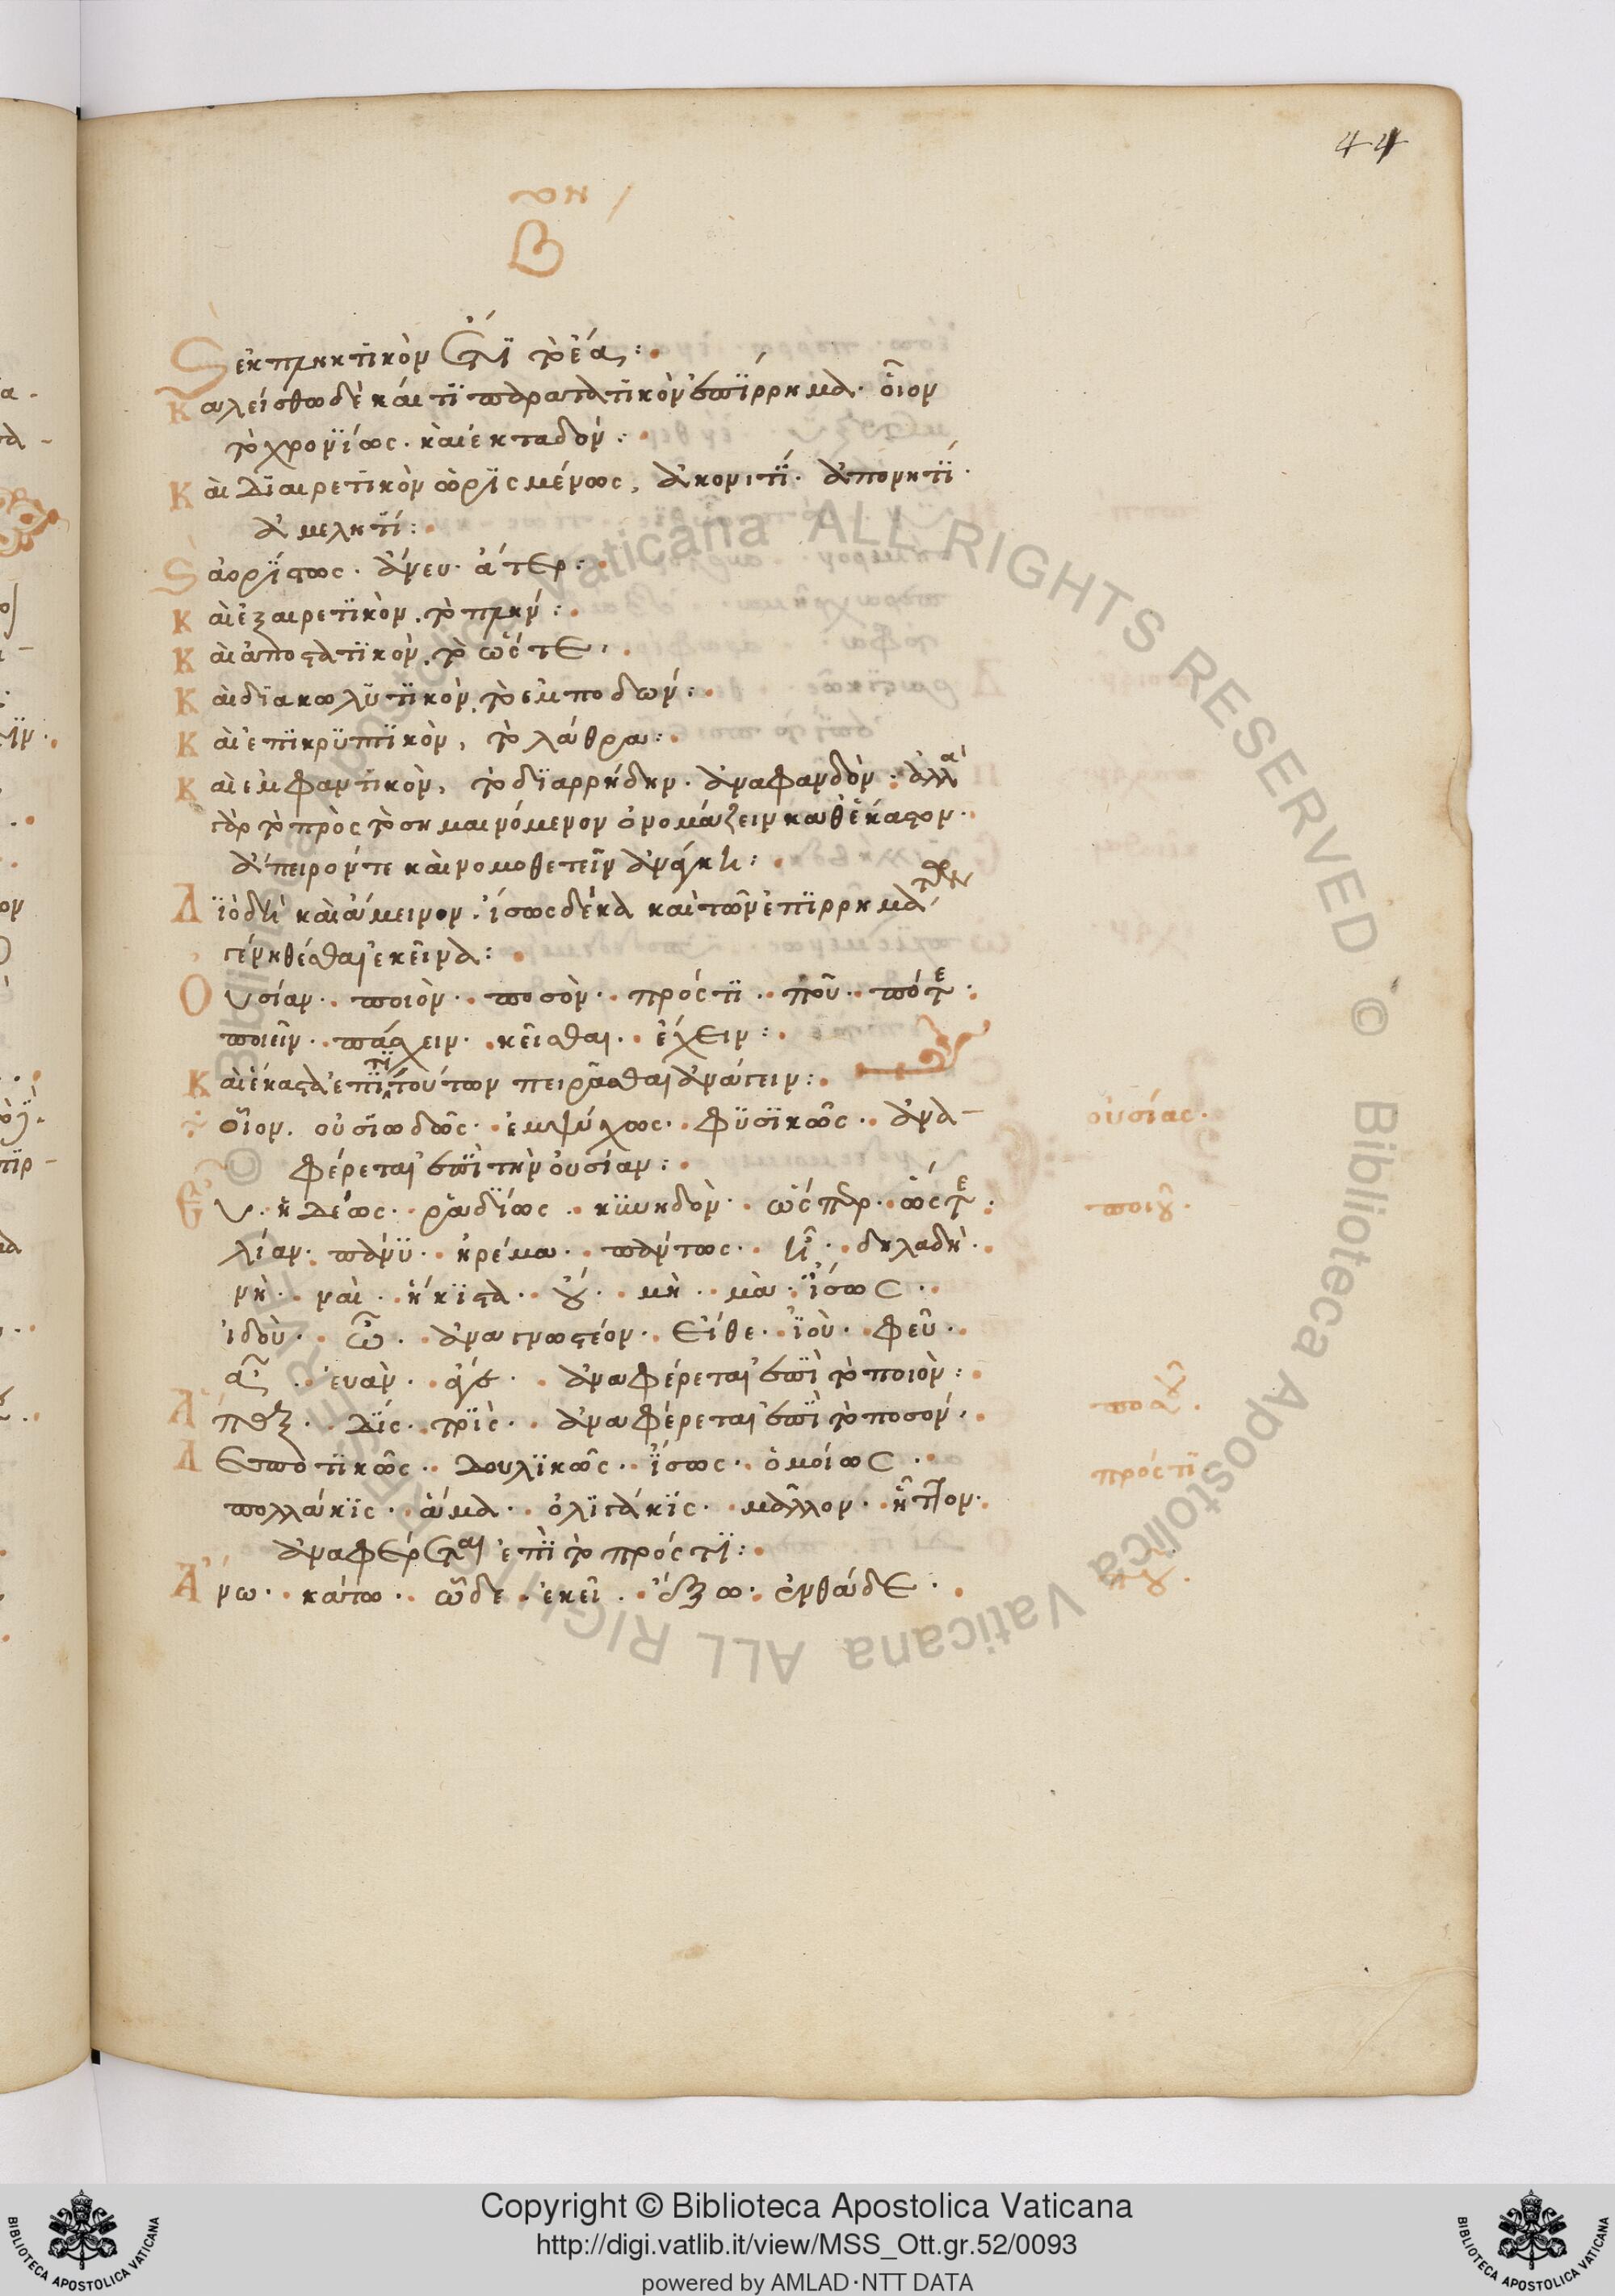 44
Β
ἐκπληκτικὸν ἔτι τὸ ἔα:
Καλείσθω δὲ καί τι παρατατικὸν ἐπίρρημα. οἷον
τὸ χρονίως. καὶ ἐκταδόν:
Καὶ διαιρετικὸν ὡρισμένως, ἀκονιτί. ἀπονητί.
ἀμελητί:
ἀορίστως. ἄνευ. ἄτερ:
Καὶ ἐξαιρετικὸν. τὸ πλήν:
Καὶ ἀποστατικὸν. τὸ ὥστε.
Καὶ διακωλυτικὸν. τὸ ἐμποδών:
Καὶ ἐπικρυπτικὸν, τὸ λάθρα:
Καὶ ἐμφαντικὸν, τὸ διαρρήδην. ἀναφανδὸν: ἀλλὰ
γὰρ τὸ πρὸς τὸ σημαινόμενον ὀνομάζειν καθ' ἕκαστον.
ἄπειρόν τε καὶ νομοθετεῖν ἀνάγκη:
Διὸ δὴ καὶ ἄμεινον. ἴσως δέκα καὶ τῶν ἐπιρρημάτων
γένη θέσθαι ἐκεῖνα:
Οὐσίαν. ποιὸν. ποσὸν. πρός τι. ποῦ. πότε.
ποιεῖν. πάσχειν. κεῖσθαι. ἔχειν:
Καὶ ἕκαστα ἐπί τι τούτων πειρᾶσθαι ἀνάγειν:
οἷον. οὐσιωδῶς. ἐμψύχως. φυσικῶς. ἀνα-
οὐσίας.
φέρεται ἐπὶ τὴν οὐσίαν:
Εὖ. ἡδέως. ῥαδίως. κυνηδὸν. ὥσπερ. ὥστε:
ποιοῦ.
λίαν. πάνυ. ἠρέμα. πάντως. ἦ. δηλαδή.
νὴ. ναὶ. ἥκιστα. οὔ. μὴ. μὰ. ἴσως.
ἰδοὺ. ὦ. ἀναγνωστέον. εἴθε. ἰοὺ. φεῦ.
εὐὰν. ἀναφέρεται ἐπὶ τὸ ποιὸν:
Ἅπαξ. δίς. τρὶς. ἀναφέρεται ἐπὶ τὸ ποσόν.
Δεσποτικῶς. δουλικῶς. ἴσως. ὁμοίως.
πρός τι
πολλάκις. ἅμα. ὀλιγάκις. μᾶλλον. ἧττον.
ἀναφέρεται ἐπὶ τὸ πρός τι:
Ἄνω. κάτω. ὧδε. ἐκεῖ. ἔξω. ἐνθάδε.
Copyright © Biblioteca Apostolica Vaticana
http://digi.vatlib.it/view/MSS_Ott.gr.52/0093
powered by AMLAD·NTT DATA
BIBLIOTECA APOSTOLICA VATICANA
BIBLIOTECA APOSTOLICA VATICANA
© Biblioteca Apostolica Vaticana ALL RIGHTS RESERVED © Biblioteca Apostolica Vaticana ALL RIGHTS RESERVED